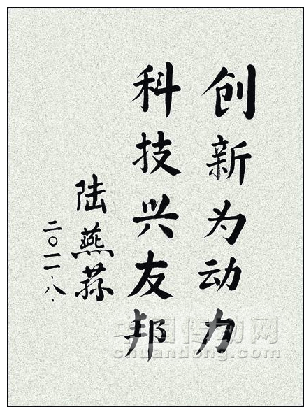 创新为动力
科技兴友邦
陆燕荪
二〇一一.八.
中国传动网
chuandong.com